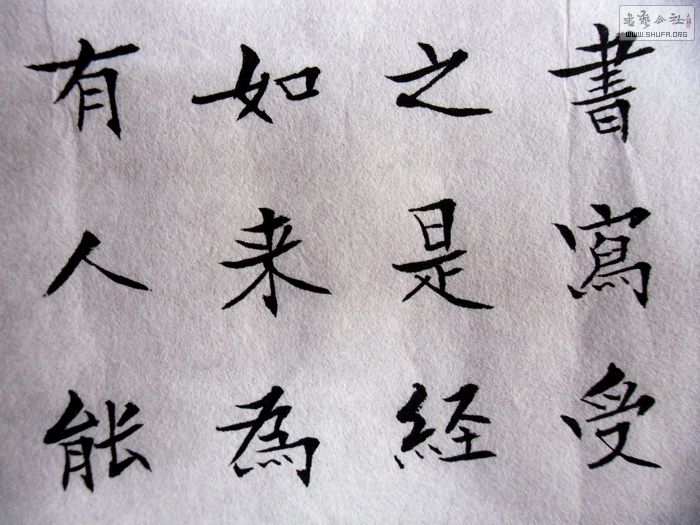 書寫受
之是経
如来為
有人能
书艺公社
WWW.SHUFA.ORG